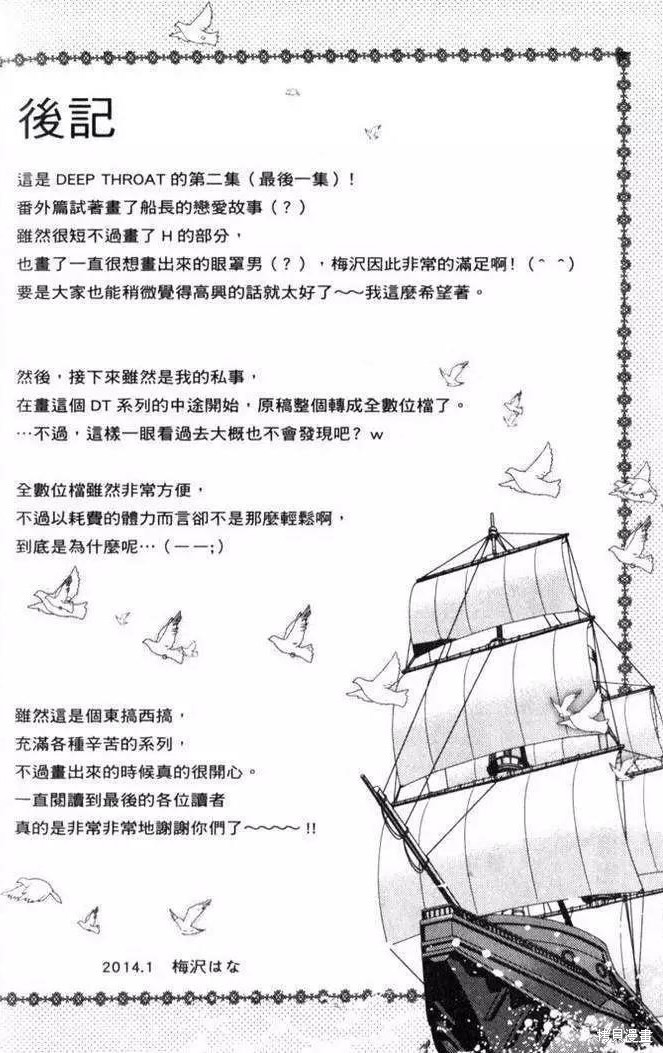 後記
這是 DEEP THROAT 的第二集（最後一集）！
番外篇試著畫了船長的戀愛故事（？）
雖然很短不過畫了 H 的部分，
也畫了一直很想畫出來的眼罩男（？），梅沢因此非常的滿足啊！（＾ ＾）
要是大家也能稍微覺得高興的話就太好了～～我這麼希望著。
然後，接下來雖然是我的私事，
在畫這個 DT 系列的中途開始，原稿整個轉成全數位檔了。
…不過，這樣一眼看過去大概也不會發現吧？ w
全數位檔雖然非常方便，
不過以耗費的體力而言卻不是那麼輕鬆啊，
到底是為什麼呢…（——;）
雖然這是個東搞西搞，
充滿各種辛苦的系列，
不過畫出來的時候真的很開心。
一直閱讀到最後的各位讀者
真的是非常非常地謝謝你們了～～～～ !!
2014.1 梅沢はな
拷貝漫畫